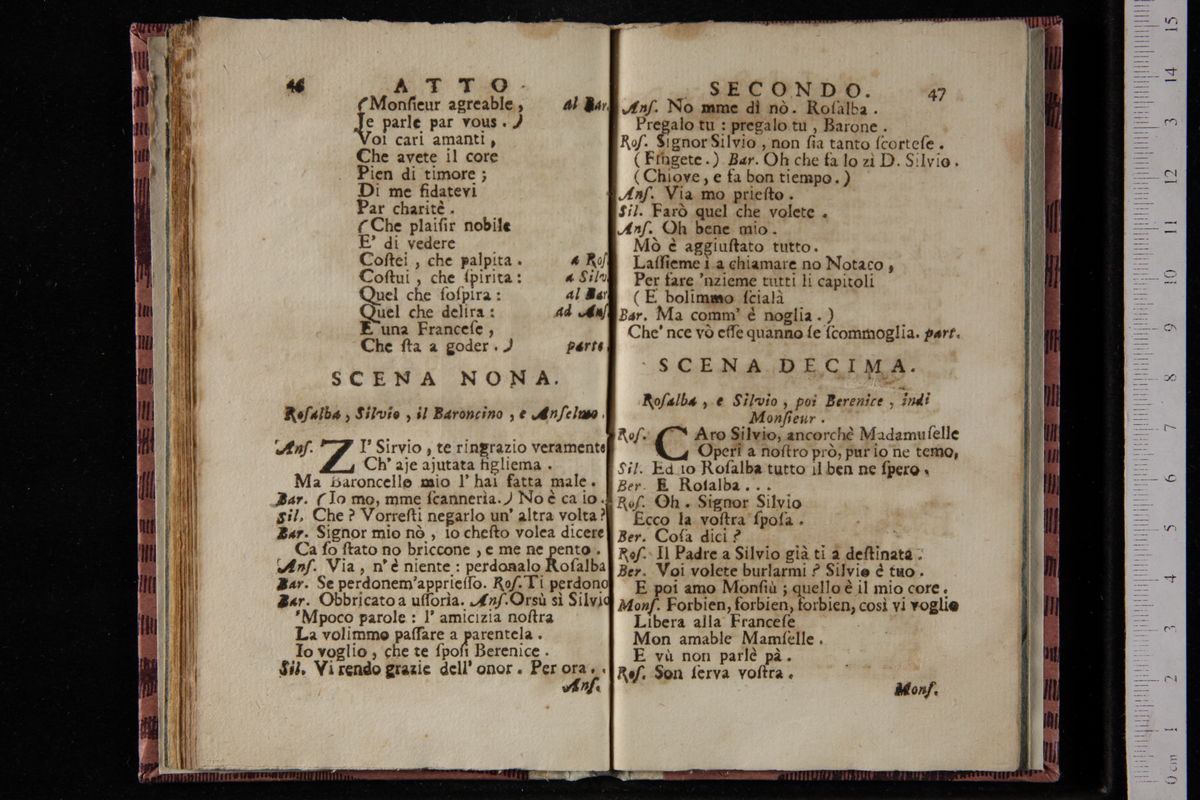 46 ATTO
(Monſieur agreable, al Bar.
Je parle par vous.)
Voi cari amanti,
Che avete il core
Pien di timore;
Di me fidatevi
Par charitè.
(Che plaiſir nobile
E' di vedere
Coſtei, che palpita. a Roſ.
Coſtui, che ſpirita: a Silv.
Quel che ſoſpira: al Bar.
Quel che delira: ad Anſ.
E una Franceſe,
Che ſta a goder.) parte.
SCENA NONA.
Roſalba, Silvio, il Baroncino, e Anſelmo.
Anſ. ZI' Sirvio, te ringrazio veramente
Ch' aje ajutata figliema.
Ma Baroncello mio l' hai fatta male.
Bar. (Io mo, mme ſcannerìa.) No è ca io.
Sil. Che? Vorreſti negarlo un' altra volta?
Bar. Signor mio nò, io cheſto volea dicere
Ca ſo ſtato no briccone, e me ne pento.
Anſ. Via, n' è niente: perdonalo Roſalba
Bar. Se perdonem' apprieſſo. Roſ. Ti perdono
Bar. Obbricato a uſſorìa. Anſ. Orsù sì Silvio
'Mpoco parole: l' amicizia noſtra
La volimmo paſſare a parentela.
Io voglio, che te ſpoſi Berenice.
Sil. Vi rendo grazie dell' onor. Per ora..
Anſ.
SECONDO. 47
Anſ. No mme dì nò. Roſalba.
Pregalo tu: pregalo tu, Barone.
Roſ. Signor Silvio, non ſia tanto ſcorteſe.
(Fingete.) Bar. Oh che fa lo zì D. Silvio.
(Chiove, e fa bon tiempo.)
Anſ. Via mo prieſto.
Sil. Farò quel che volete.
Anſ. Oh bene mio.
Mò è aggiuſtato tutto.
Laſſieme i a chiamare no Notaco,
Per fare 'nzieme tutti li capitoli
(E bolimmo ſcialà
Bar. Ma comm' è noglia.)
Che' nce vò eſſe quanno ſe ſcommoglia. part.
SCENA DECIMA.
Roſalba, e Silvio, poi Berenice, indi
Monſieur.
Roſ. CAro Silvio, ancorchè Madamuſelle
Operi a noſtro prò, pur io ne temo,
Sil. Ed io Roſalba tutto il ben ne ſpero.
Ber. E Roſalba...
Roſ. Oh. Signor Silvio
Ecco la voſtra ſpoſa.
Ber. Coſa dici?
Roſ. Il Padre a Silvio già ti a deſtinata.
Ber. Voi volete burlarmi? Silvio è tuo.
E poi amo Monſiù; quello è il mio core.
Monſ. Forbien, forbien, forbien, così vi voglio
Libera alla Franceſe
Mon amable Mamſelle.
E vù non parlè pà.
Roſ. Son ſerva voſtra.
Monſ.